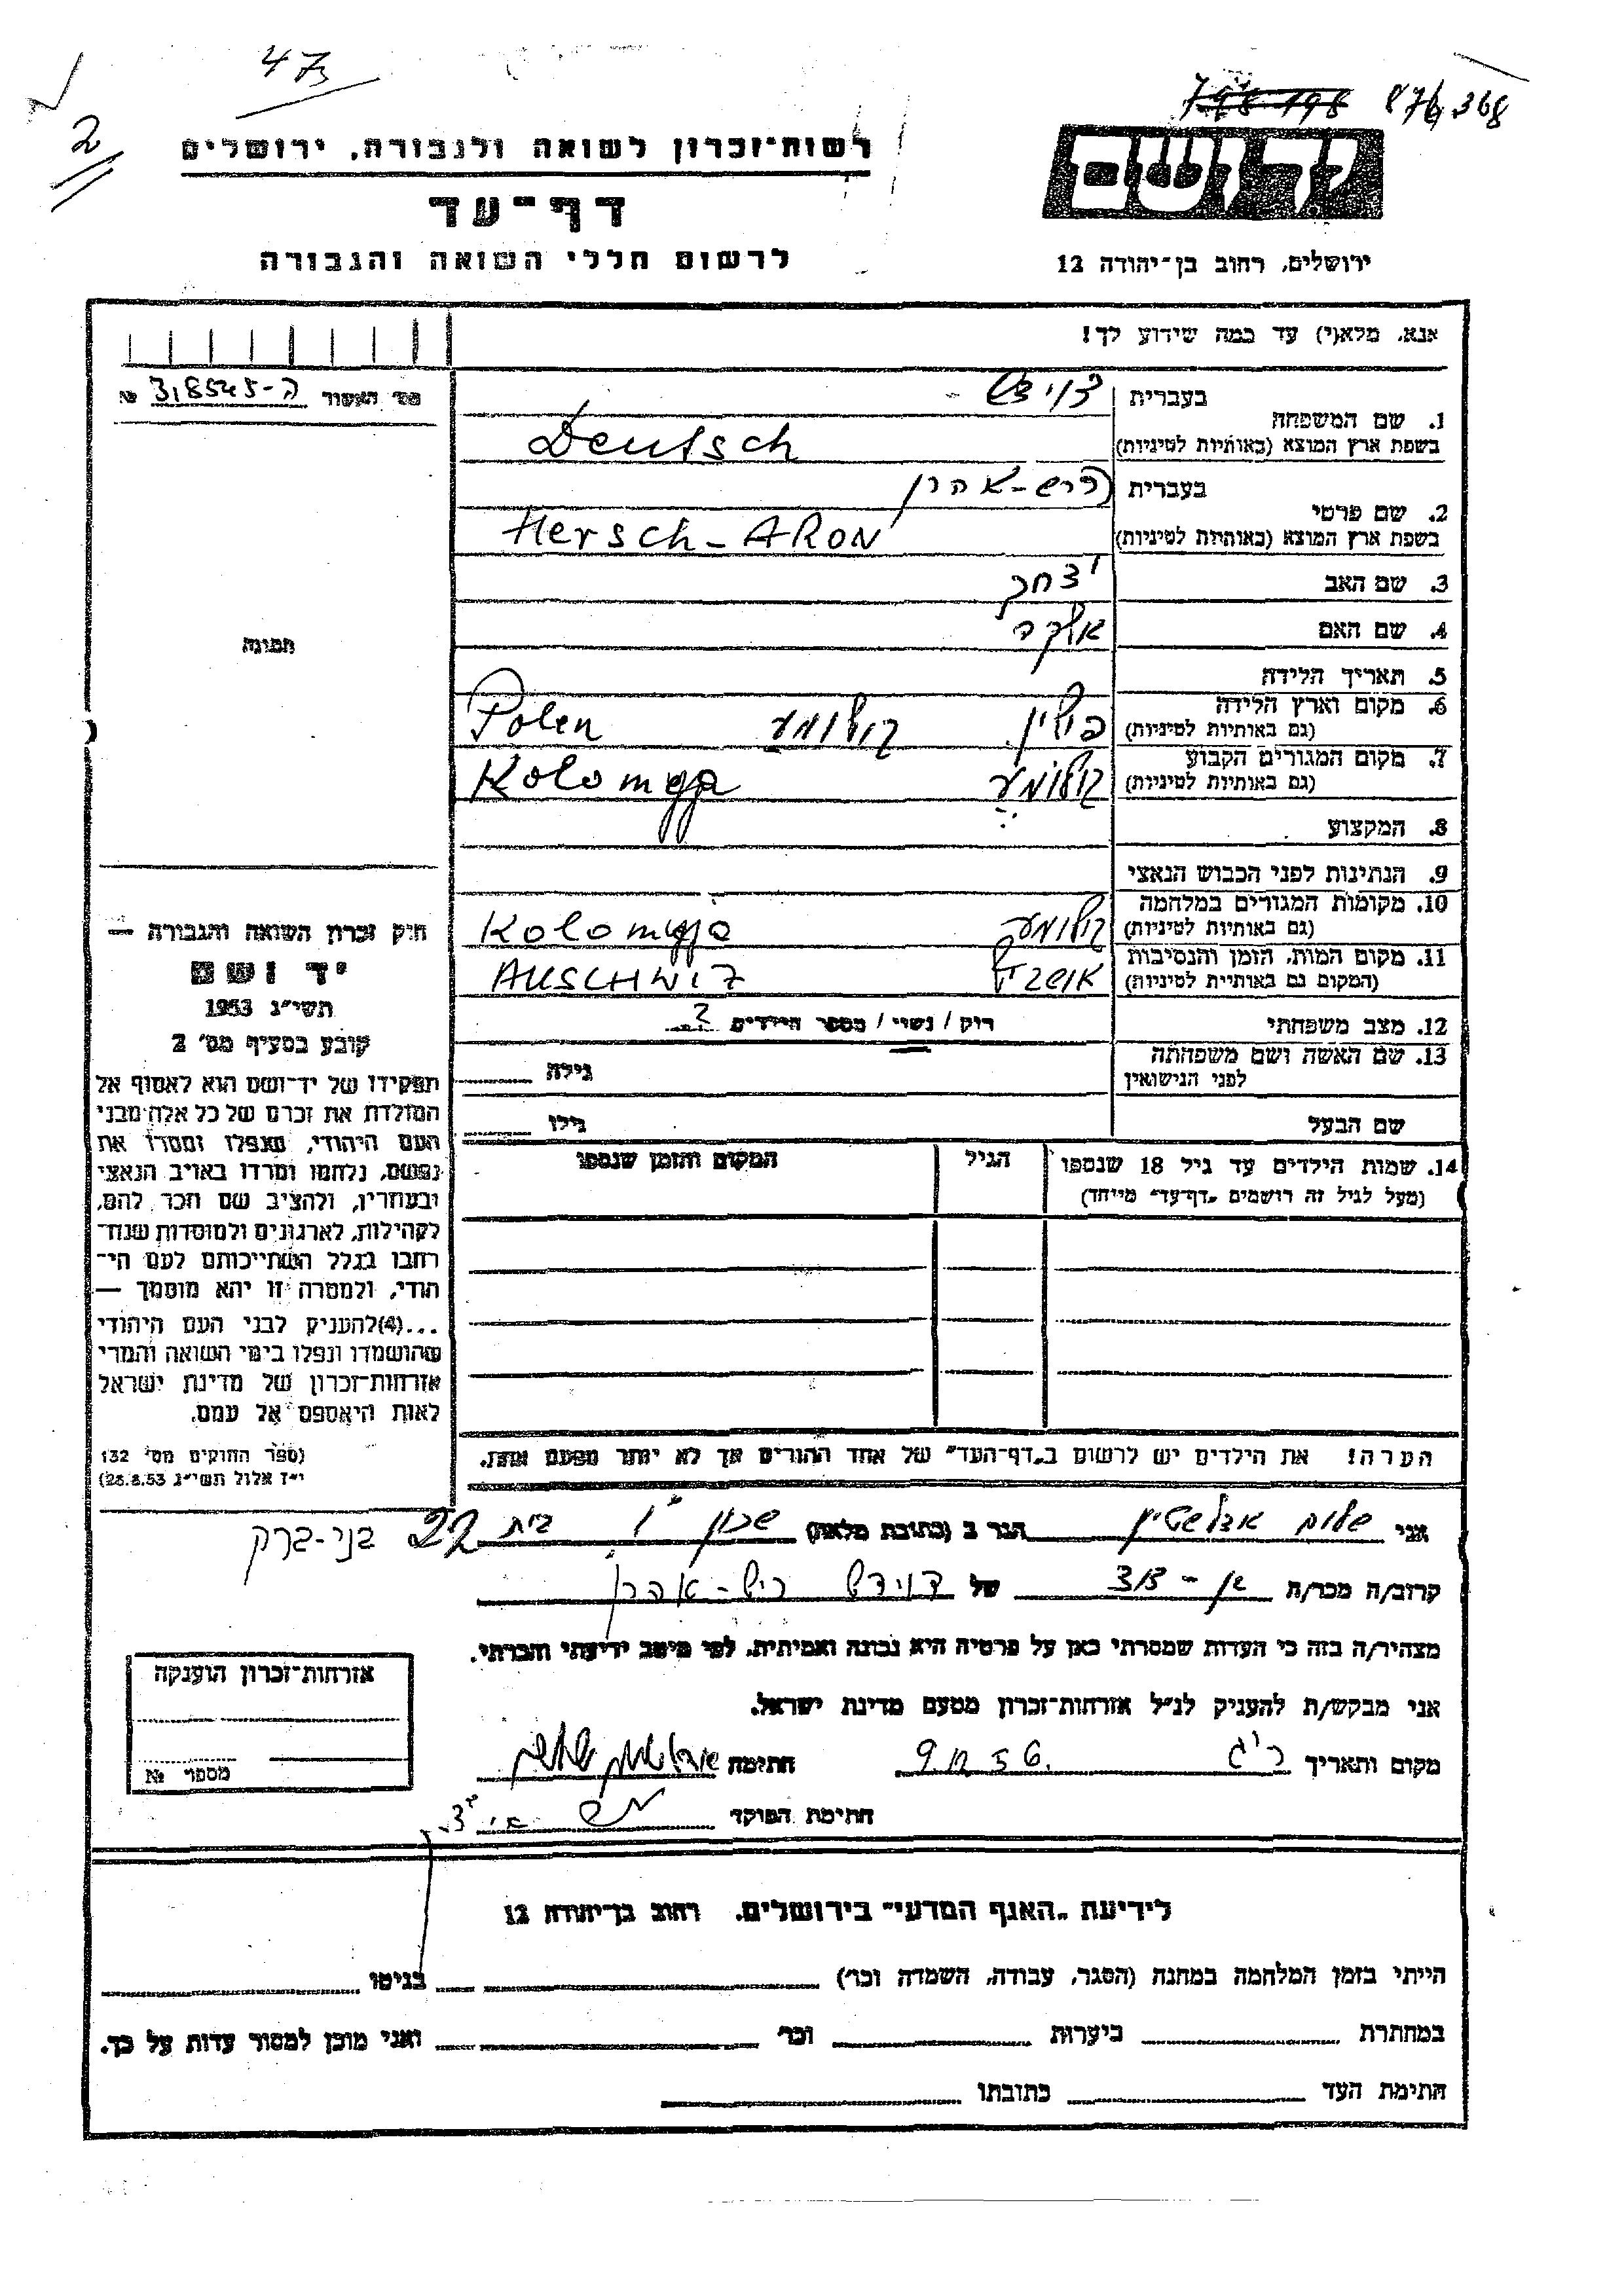 47
2
876,368
רשות־זכרון לשואה ולגבורה, ירושלים
דף־עד
לרשום חללי השואה והגבורה
ידושם
ירושלים, רחוב בן־יהודה 12
אנא, מלא(י) עד כמה שידוע לך!
מס׳ האשור ה-318545 №
1. שם המשפחה
בעברית דויטש
בשפת ארץ המוצא (באותיות לטיניות) Deutsch
2. שם פרטי
בעברית הרש-אהרן
בשפת ארץ המוצא (באותיות לטיניות) Hersch-ARON
3. שם האב יצחק
4. שם האם
5. תאריך הלידה
6. מקום וארץ הלידה פולין קולומע Polen
(גם באותיות לטיניות)
7. מקום המגורים הקבוע קולומע Kolomyja
(גם באותיות לטיניות)
8. המקצוע
9. הנתינות לפני הכבוש הנאצי
10. מקומות המגורים במלחמה קולומע Kolomyja
(גם באותיות לטיניות)
11. מקום המות, הזמן והנסיבות AUSCHWIZ
(המקום גם באותיות לטיניות)
12. מצב משפחתי רוק / נשוי / מספר הילדים 2
13. שם האשה ושם משפחתה גילה
לפני הנישואין
שם הבעל גילו
14. שמות הילדים עד גיל 18 שנספו הגיל המקום והזמן שנספו
(מעל לגיל זה רושמים „דף־עד״ מיוחד)
הערה! את הילדים יש לרשום ב„דף־העד״ של אחד ההורים אך לא יותר מפעם אחת.
תמונה
חוק זכרון השואה והגבורה —
יד ושם
תשי״ג 1953
קובע בסעיף מס׳ 2
תפקידו של יד־ושם הוא לאסוף אל
המולדת את זכרם של כל אלה מבני
העם היהודי, שנפלו ומסרו את
נפשם, נלחמו ומרדו באויב הנאצי
ובעוזריו, ולהציב שם וזכר להם,
לקהילות, לארגונים ולמוסדות שנח־
רבו בגלל השתייכותם לעם הי־
הודי, ולמטרה זו יהא מוסמך —
...(4)להעניק לבני העם היהודי
שהושמדו ונפלו בימי השואה והמרי
אזרחות־זכרון של מדינת ישראל
לאות היאספם אל עמם.
(ספר החוקים מס׳ 132
י״ז אלול תשי״ג 28.8.53)
אני שלום אדלשטיין הגר ב (כתובת מלאה) שכון ו׳ בית 22 בני-ברק
קרוב/ה מכר/ה בן-דוד של דויטש הרש-אהרן
מצהיר/ה בזה כי העדות שמסרתי כאן על פרטיה היא נכונה ואמיתית, לפי מיטב ידיעתי והכרתי.
אני מבקש/ת להעניק לנ״ל אזרחות־זכרון מטעם מדינת ישראל.
מקום ותאריך ר״ג חתימה
חתימת הפוקד
אזרחות־זכרון הוענקה
מספר №
לידיעת „האגף המדעי״ בירושלים, רחוב בן־יהודה 12
הייתי בזמן המלחמה במחנה (הסגר, עבודה, השמדה וכו׳) בגיטו
במחתרת ביערות וכו׳ ואני מוכן למסור עדות על כך.
חתימת העד כתובתו